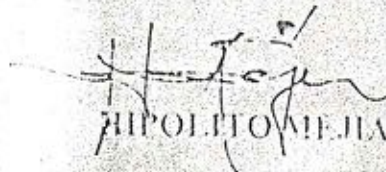 HIPOLITO MEJIA